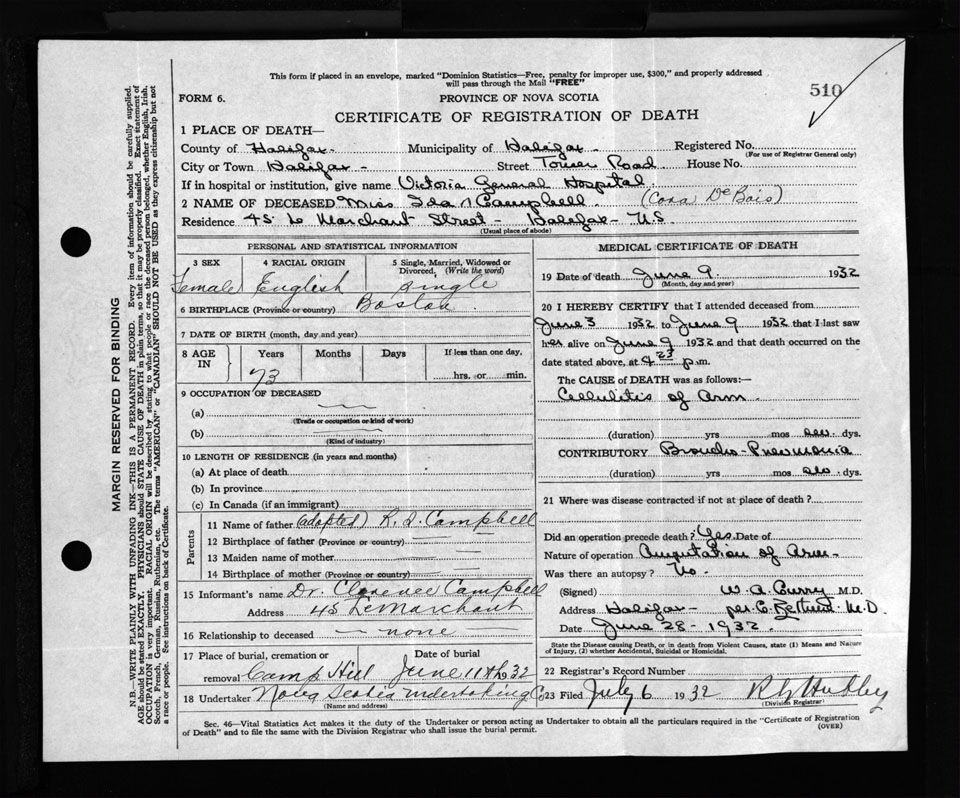 This form if placed in an envelope, marked "Dominion Statistics—Free, penalty for improper use, $300," and properly addressed
will pass through the Mail "FREE"
510
FORM 6.
PROVINCE OF NOVA SCOTIA
CERTIFICATE OF REGISTRATION OF DEATH
1 PLACE OF DEATH—
County of Halifax - Municipality of Halifax - Registered No.
(For use of Registrar General only)
City or Town Halifax - Street Tower Road House No.
If in hospital or institution, give name Victoria General Hospital
2 NAME OF DECEASED Miss Ida Campbell (Cora De Bois)
Residence 45 Le Marchant Street - Halifax - N.S.
(Usual place of abode)
PERSONAL AND STATISTICAL INFORMATION
3 SEX 4 RACIAL ORIGIN 5 Single, Married, Widowed or
Divorced, (Write the word)
Female English Single
6 BIRTHPLACE (Province or country) Boston
7 DATE OF BIRTH (month, day and year)
8 AGE IN Years Months Days If less than one day,
73 hrs. or min.
9 OCCUPATION OF DECEASED
(a)
(Trade or occupation or kind of work)
(b)
(Kind of industry)
10 LENGTH OF RESIDENCE (in years and months)
(a) At place of death
(b) In province
(c) In Canada (if an immigrant)
Parents
11 Name of father (adopted) R. I. Campbell
12 Birthplace of father (Province or country)
13 Maiden name of mother
14 Birthplace of mother (Province or country)
15 Informant's name Dr. Clarence Campbell
Address 45 LeMarchant
16 Relationship to deceased — none
17 Place of burial, cremation or Date of burial
removal Camp Hill June 11th 32
18 Undertaker Nova Scotia Undertaking Co
(Name and address)
MEDICAL CERTIFICATE OF DEATH
19 Date of death June 9. 1932
(Month, day and year)
20 I HEREBY CERTIFY that I attended deceased from
June 3 1932 to June 9 1932 that I last saw
her alive on June 9 1932 and that death occurred on the
date stated above, at 4 23 p.m.
The CAUSE OF DEATH was as follows:—
Cellulitis of Arm
(duration) yrs mos dys.
CONTRIBUTORY Broncho-Pneumonia
(duration) yrs mos dys.
21 Where was disease contracted if not at place of death?
Did an operation precede death? Yes. Date of
Nature of operation Amputation of Arm -
Was there an autopsy? No.
(Signed) W. A. Curry M.D.
Address Halifax - per. E. M.D.
Date June 28 - 1932.
State the Disease causing Death, or in Death from Violent Causes, state (1) Means and Nature
of Injury, (2) whether Accidental, Suicidal or Homicidal.
22 Registrar's Record Number
23 Filed July 6 1932
(Division Registrar)
Sec. 46—Vital Statistics Act makes it the duty of the Undertaker or person acting as Undertaker to obtain all the particulars required in the "Certificate of Registration
of Death" and to file the same with the Division Registrar who shall issue the burial permit.
(OVER)
MARGIN RESERVED FOR BINDING
N.B.—WRITE PLAINLY WITH UNFADING INK—THIS IS A PERMANENT RECORD. Every item of information should be carefully supplied.
AGE should be stated EXACTLY. PHYSICIANS should STATE CAUSE OF DEATH in plain terms, so that it may be properly classified. Exact statement of
OCCUPATION is very important. RACIAL ORIGIN will be described by stating to what people or race the deceased person belonged, whether English, Irish,
Scotch, French, German, Russian, Ruthenian, etc. The terms "AMERICAN" or "CANADIAN" SHOULD NOT BE USED as they express citizenship but not
a race or people. See instructions on back of Certificate.